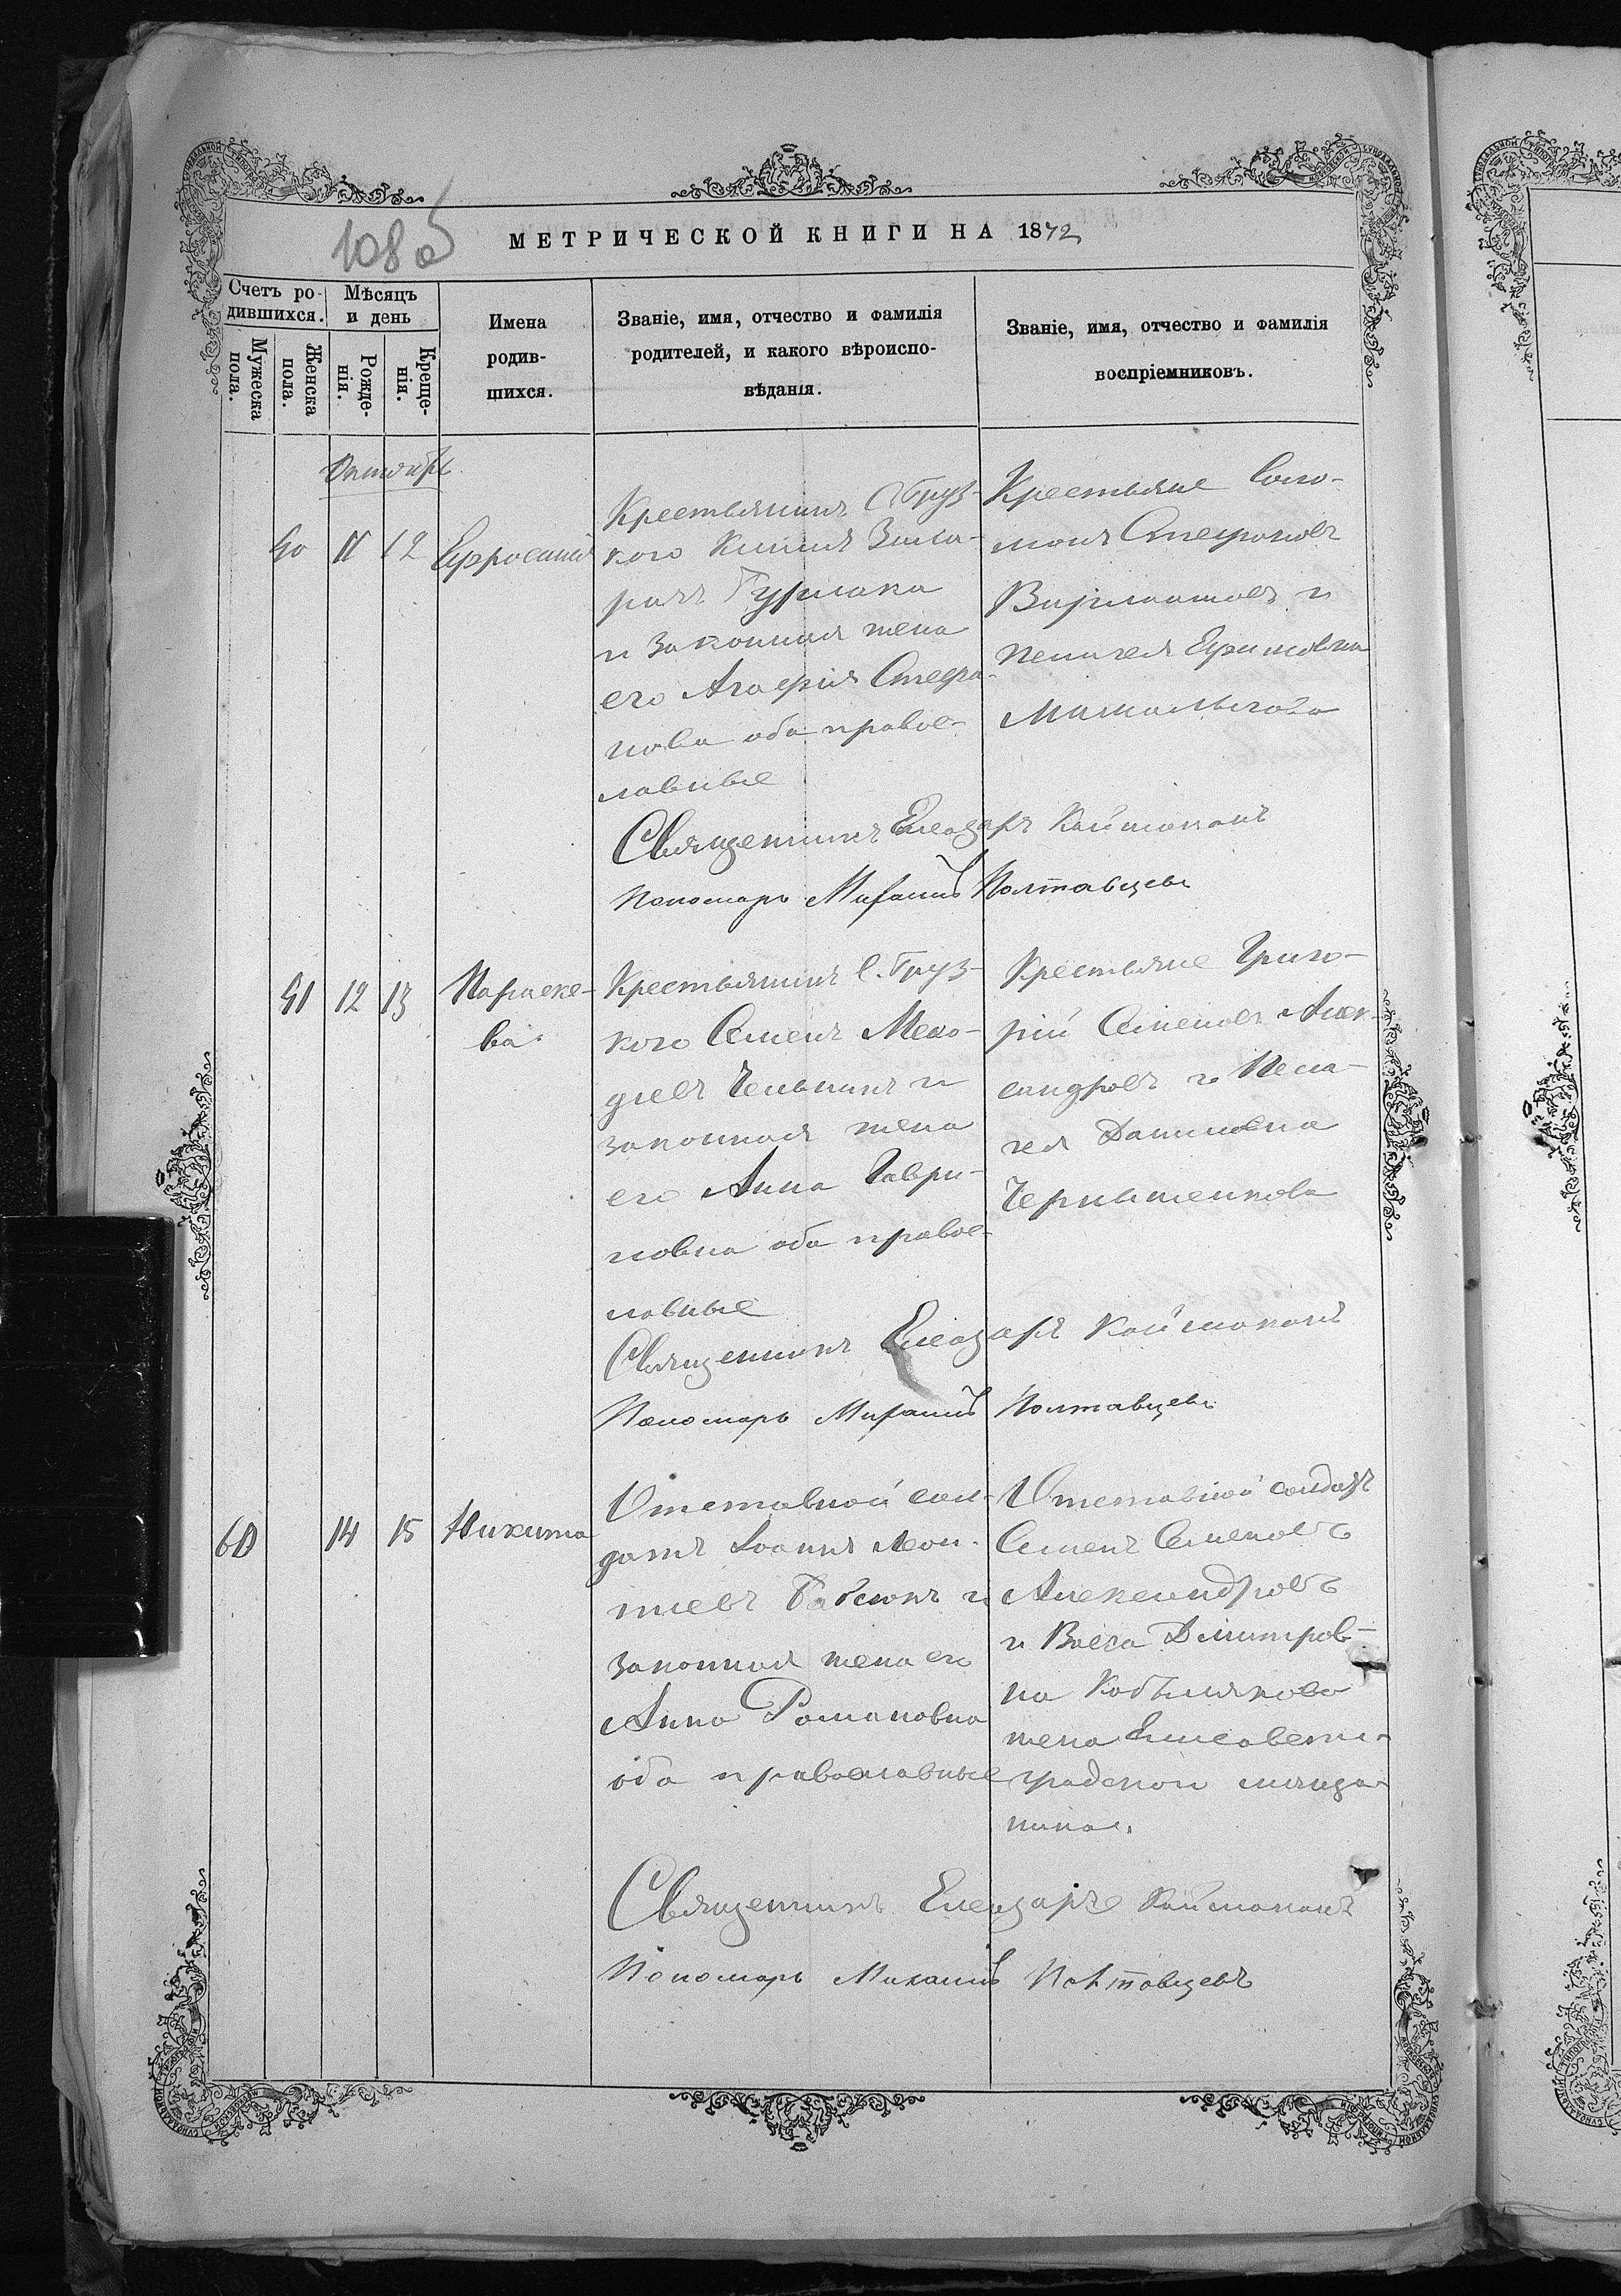 108 об
МЕТРИЧЕСКОЙ КНИГИ НА 1872
Счетъ ро-
дившихся.
Мѣсяцъ
и день
Мужеска
пола.
Женска
пола.
Рожде-
нія.
Креще-
нія.
Имена
родив-
шихся.
Званіе, имя, отчество и фамилія
родителей, и какого вѣроиспо-
вѣданія.
Званіе, имя, отчество и фамилія
воспріемниковъ.
Октябрь
11 12 Ефросинія
Крестьянинъ С Груз-
кого
и законная жена
его Агафія Стефа-
нова оба право-
славные
Крестьяне Соло-
монъ Стефановъ
и
Пелагея Ефимовна
Священникъ Елеазаръ Каймаканъ
Пономарь Михаилъ Полтавцевъ
12 13 Параске-
ва
Крестьянинъ С. Груз-
кого Семенъ Мефо-
діевъ и
законная жена
его Анна Гаври-
ловна оба право-
славные
Крестьяне Григо-
рій Семеновъ Алек-
сандровъ и Пела-
гея Даниловна
Чернышенкова
Священникъ Елеазаръ Каймаканъ
Пономарь Михаилъ Полтавцевъ
60 14 15 Никита
Отставной сол-
датъ Іоаннъ Леон-
тіевъ и
законная жена его
Анна Романовна
оба православные
Отставной солдатъ
Семенъ Семеновъ
Александровъ
и Васса Димитров-
на Кобылякова
жена Елисавет-
градской мѣща-
нина.
Священникъ Елеазаръ Каймаканъ
Пономарь Михаилъ Полтавцевъ